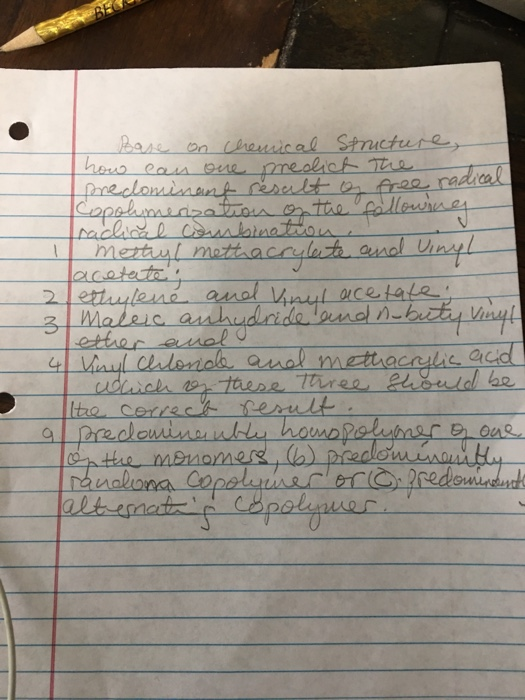 BEC
Base on chemical Structure,
how can one predict The
predominant result of free radical
Copolymerization of the following
radical combination.
1 methyl methacrylate and Vinyl
acetate;
2 ethylene and Vinyl acetate;
3 Maleic anhydride and n-buty vinyl
ether and
4 Vinyl chloride and methacrylic acid
which of these three should be
the correct result.
a predominantly homopolymer of one
of the monomers, (b) predominantly
random copolymer or (C). predominant
alternatig Copolymer.